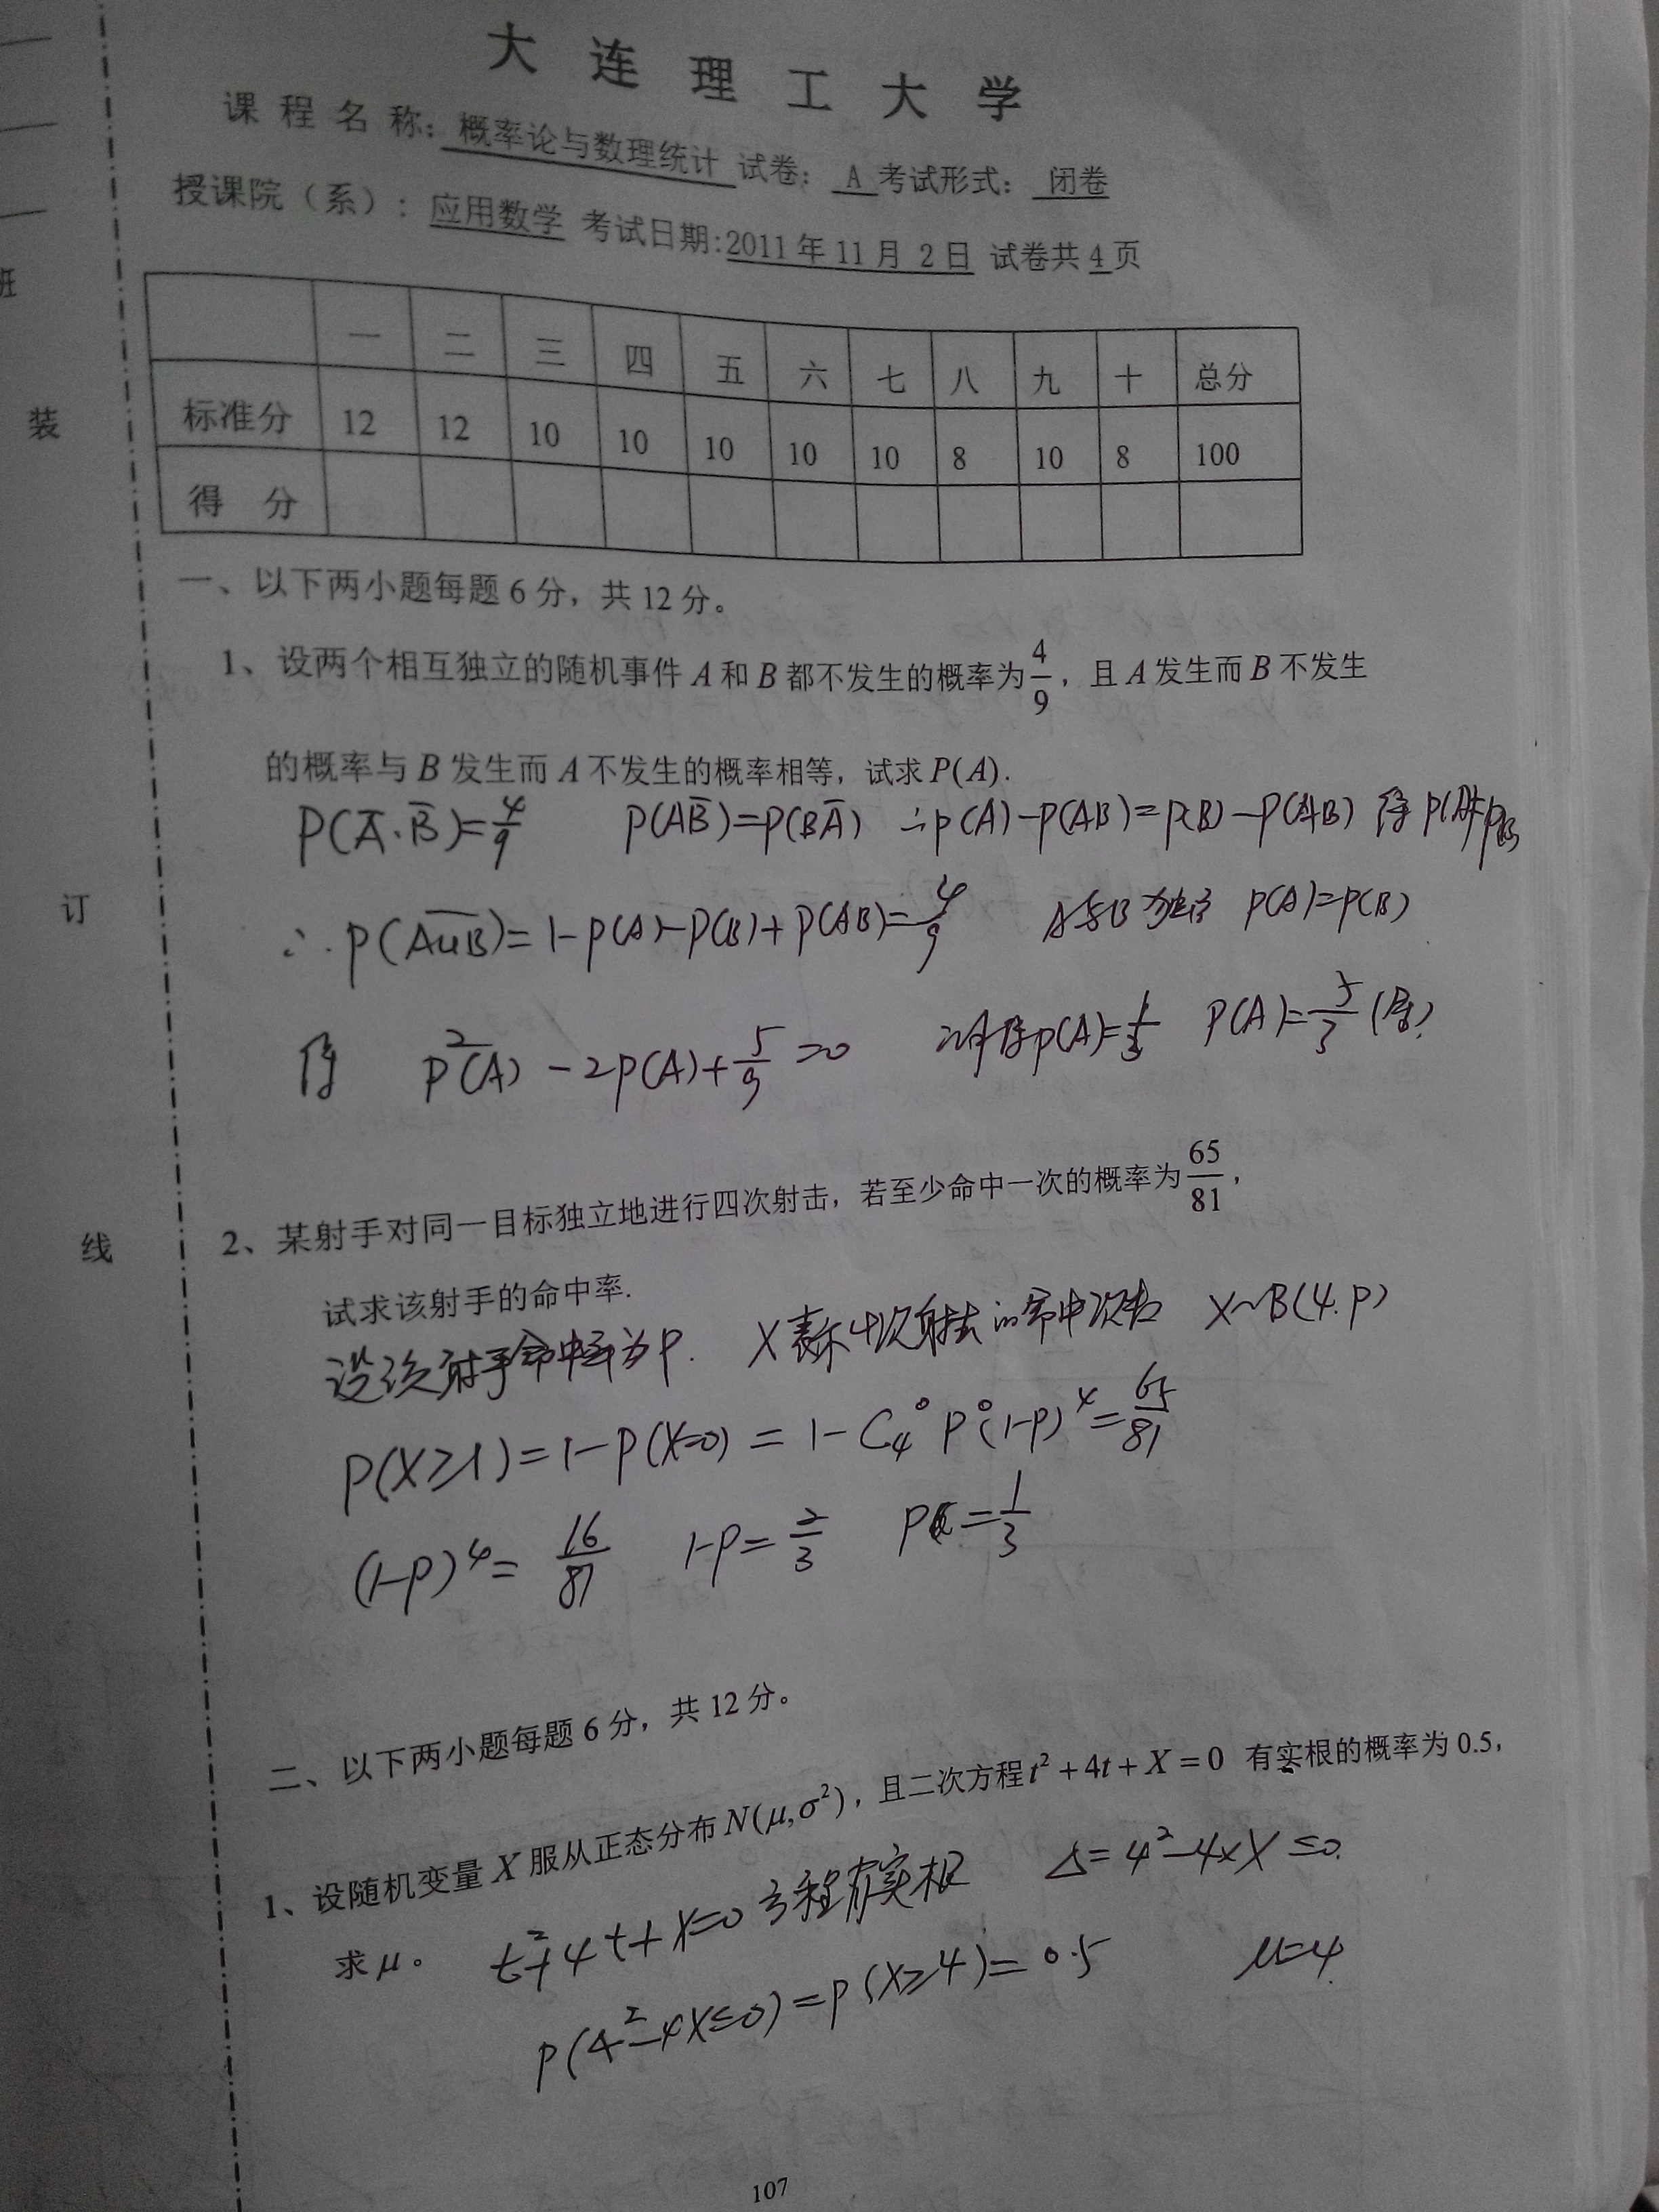 大连理工大学
课程名称：概率论与数理统计 试卷：A 考试形式：闭卷
授课院（系）：应用数学 考试日期:2011年11月2日 试卷共4页
一 二 三 四 五 六 七 八 九 十 总分
标准分 12 12 10 10 10 10 10 8 10 8 100
得 分
班
装
订
线
一、以下两小题每题6分，共12分。
1、设两个相互独立的随机事件A和B都不发生的概率为4/9，且A发生而B不发生
的概率与B发生而A不发生的概率相等，试求P(A).
P(A̅·B̅)=4/9 P(AB̅)=P(BA̅) ∴P(A)-P(AB)=P(B)-P(AB) 得P(A)=P(B)
∴P(A∪B)̅=1-P(A)-P(B)+P(AB)=4/9 A与B独立 P(A)=P(B)
得 P²(A)-2P(A)+5/9=0 P(A)=1/3 P(A)=5/3
2、某射手对同一目标独立地进行四次射击，若至少命中一次的概率为65/81，
试求该射手的命中率.
设该射手命中率为P. X表示4次射击的命中次数 X~B(4.P)
P(X≥1)=1-P(X=0)=1-C₄⁰P⁰(1-P)⁴=65/81
(1-P)⁴=16/81 1-P=2/3 P=1/3
二、以下两小题每题6分，共12分。
1、设随机变量X服从正态分布N(μ,σ²)，且二次方程t²+4t+X=0 有实根的概率为0.5，
求μ。 t²+4t+X=0方程有实根 Δ=4²-4×X≤0.
P(4²-4X≤0)=P(X≥4)=0.5 μ=4
107